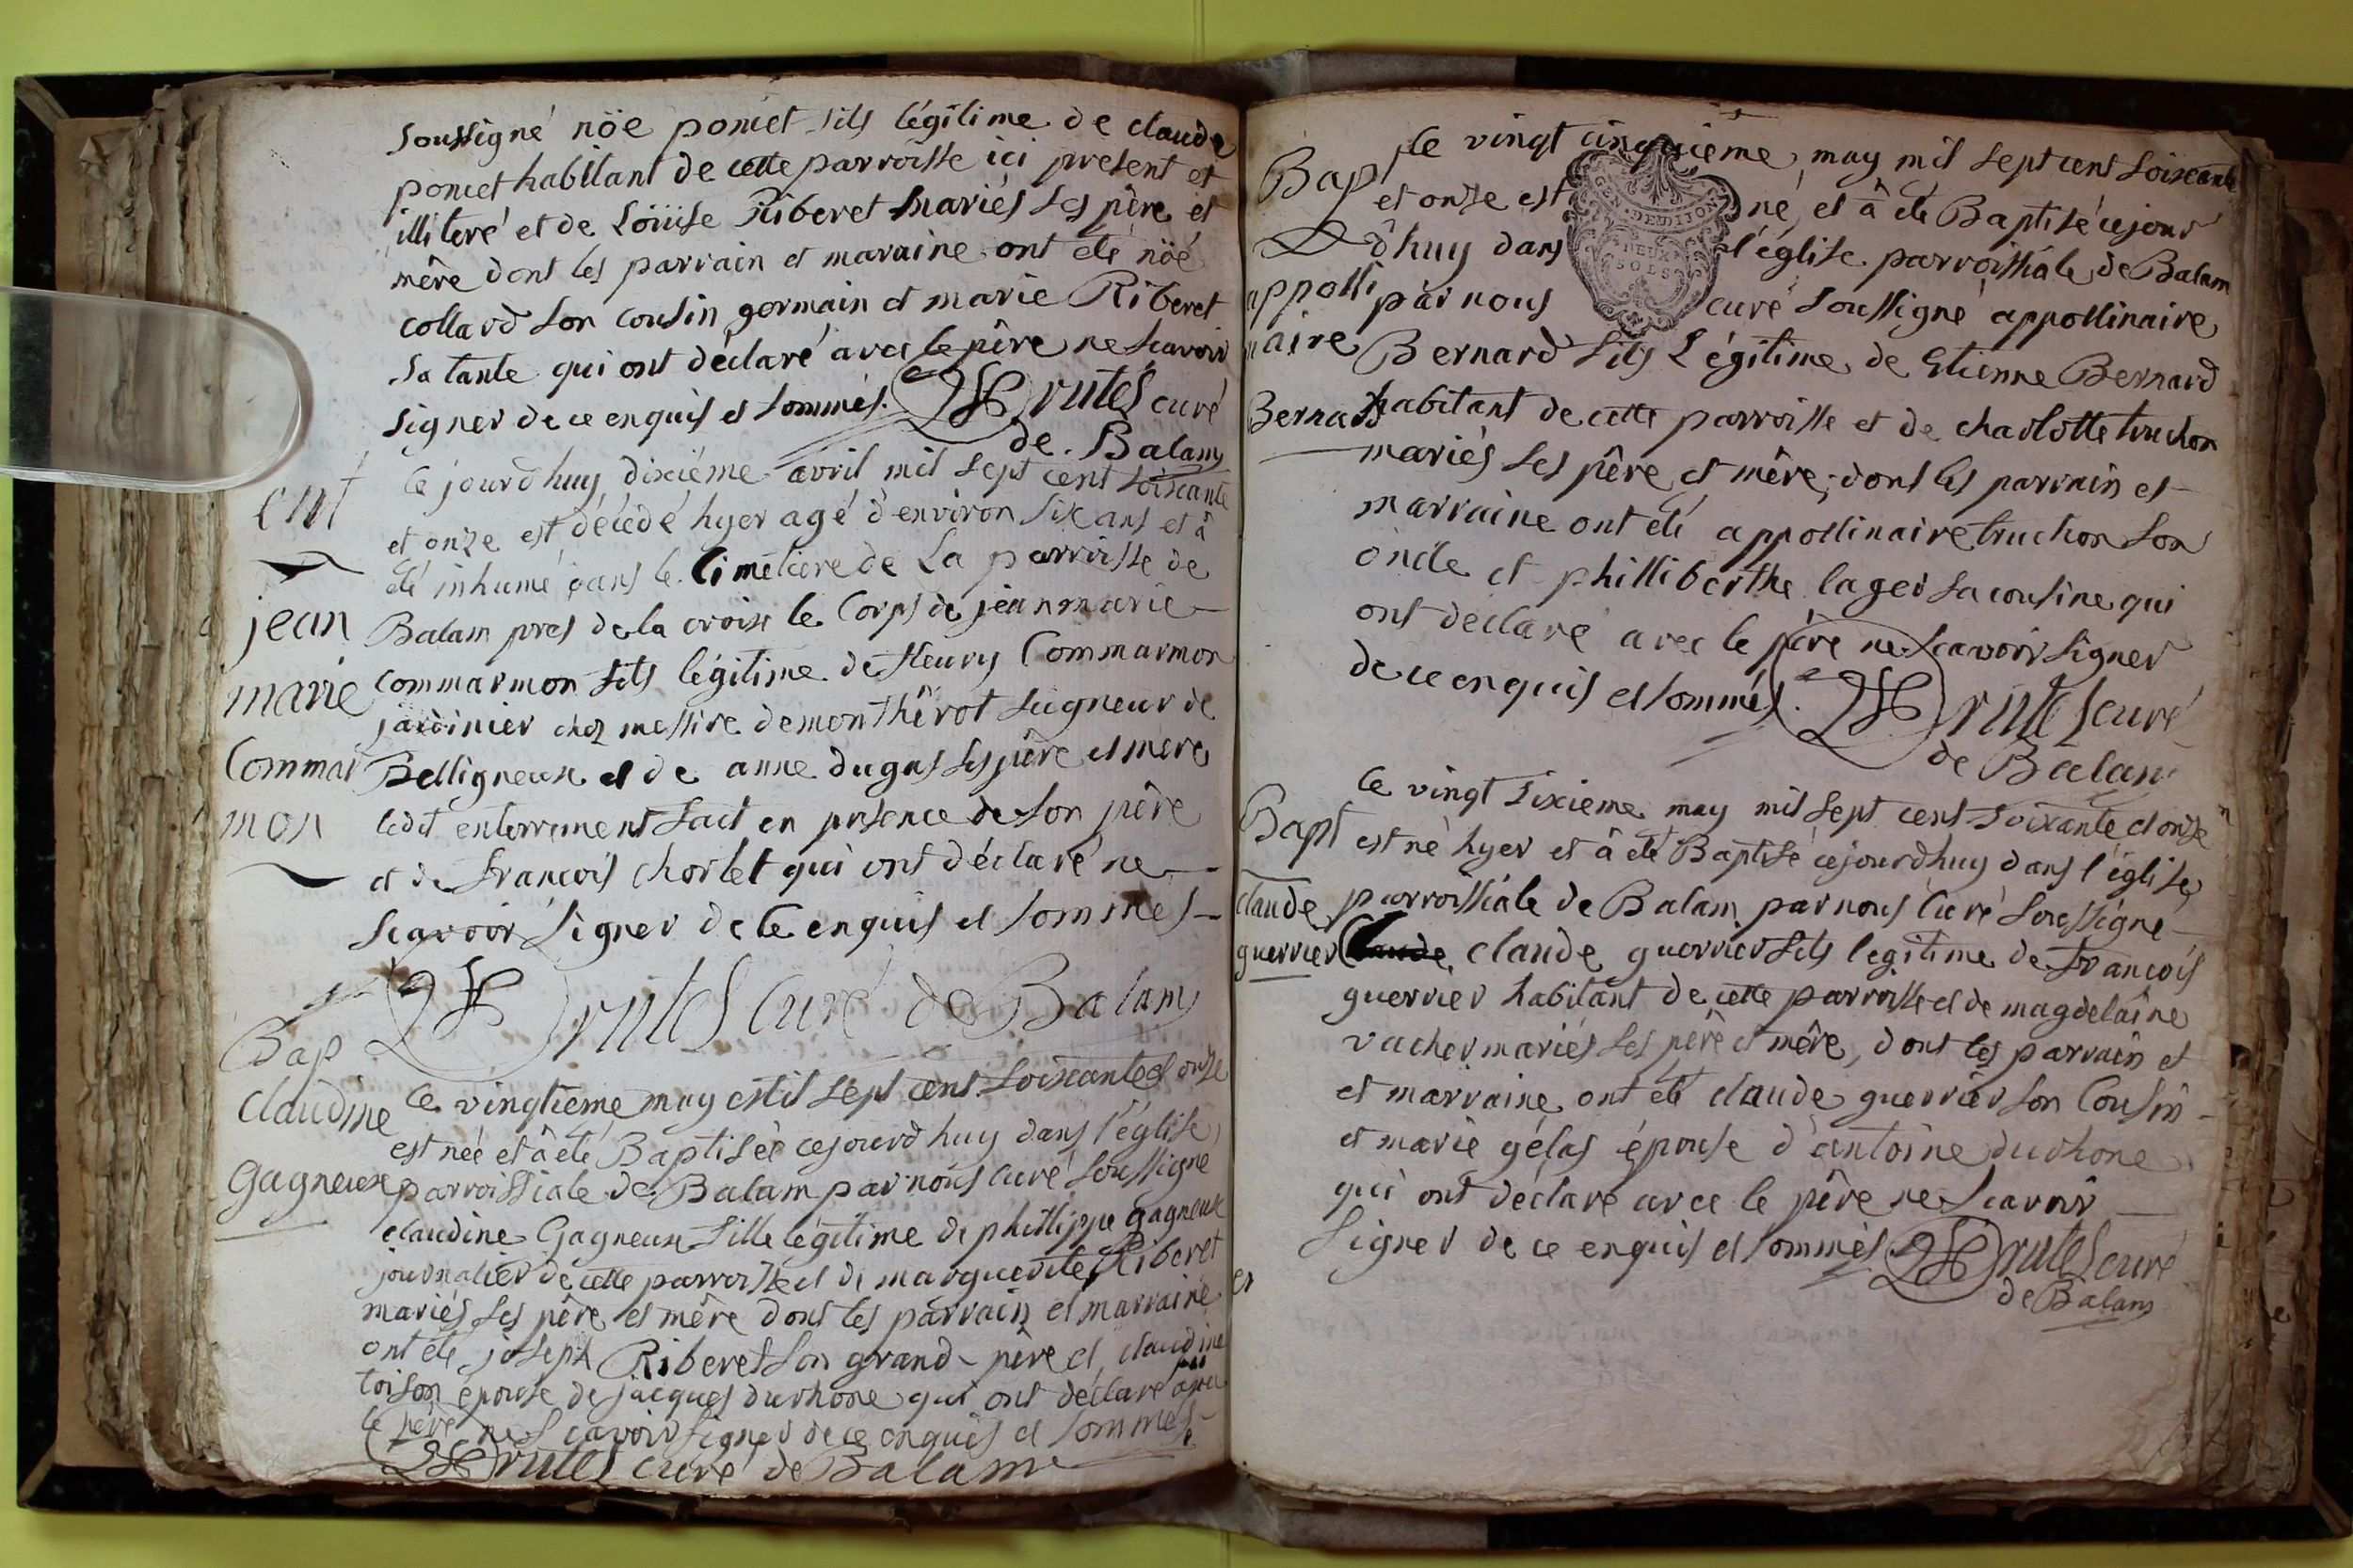 soussigné nöe poncet fils légitime de claude
poncet habitant de cette parroisse ici present et
illiteré et de Loüise Riberet mariés ses pêre et
mêre dont les parrain et maraine ont eté nöé
collard son cousin germain et marie Riberet
sa tante qui ont déclaré avec le pêre ne scavoir
signer de ce enquis et sommés. Drutes curé
de Balam
ent
jean
marie
Commar
mon
Ce jourdhuy dixiéme avril mil sept cent soixante
et onze est décédé hyer agé d'environ six ans et â
été inhumé dans le Cimétiere de La parroisse de
Balam pres de la croix le Corps de jean marie
Commarmon fils légitime de fleury Commarmon
jardinier chez messire de monthêrot seigneur de
Belligneux et de anne dugas ses pêre et mere
ledit enterrement fait en présence de son pêre
et de francois chorlet qui ont déclaré ne
scavoir signer de Ce enquis et sommés
Drutes Curé de Balam
Bap
Claudine
Gagneux
Ce vingtieme may mil sept cent soixante et onze
est née et â eté Baptisée cejourdhuy dans l'église
parroissiale de Balam par nous curé soussigné
claudine Gagneux fille légitime de phillippe gagneux
journalier de cette parroisse et de marguerite Riberet
mariés ses pêre et mêre dont les parrain et marraine
ont eté joseph Riberet son grand-pêre et claudine
toison épouse de jacques durhone qui ont déclaré avec
le pere ne scavoir signer de ce enquis et sommés
Drutes curé de Balam
Bap
appolli
naire
Bernard
Ce vingt cinquieme may mil sept cent soixante
et onze est né et â eté Baptisé cejour
dhuy dans l'église parroissiale de Balam
par nous curé soussigné appollinaire
Bernard fils Légitime de Etienne Bernard
habitant de cette parroisse et de charlotte truchon
mariés ses pêre et mêre, dont les parrain et
marraine ont eté appollinaire truchon son
oncle et philliberthe lager sa cousine qui
ont déclaré avec le pére ne scavoir signer
de ce enquis et sommés. Drutes curé
de Balam
GEN. DE DIJON
DEUX
SOLS
Bapt
claude
guerrier
Ce vingt sixieme may mil sept cent soixante et onze
est né hyer et â eté Baptisé cejourdhuy dans l'église
parroissiale de Balam par nous Curé soussigné
Claude claude guerrier fils legitime de francois
guerrier habitant de cette parroisse et de magdelaine
vacher mariés ses pêre et mêre, dont les parrain et
et marraine ont eté claude guerrier son Cousin
et marie gélas épouse d'antoine durhone
qui ont déclaré avec le pêre ne scavoir
signer de ce enquis et sommés Drutes curé
de Balam